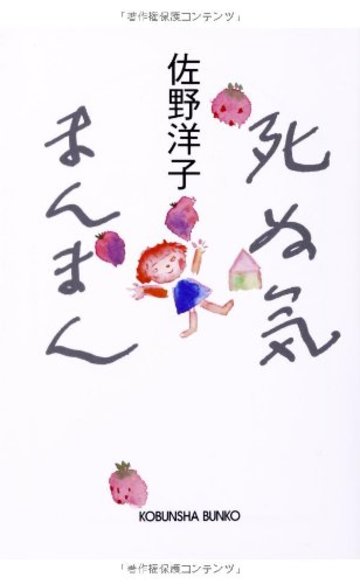 「著作権保護コンテンツ」
死ぬ気
まんまん
佐野洋子
KOBUNSHA BUNKO
「著作権保護コンテンツ」